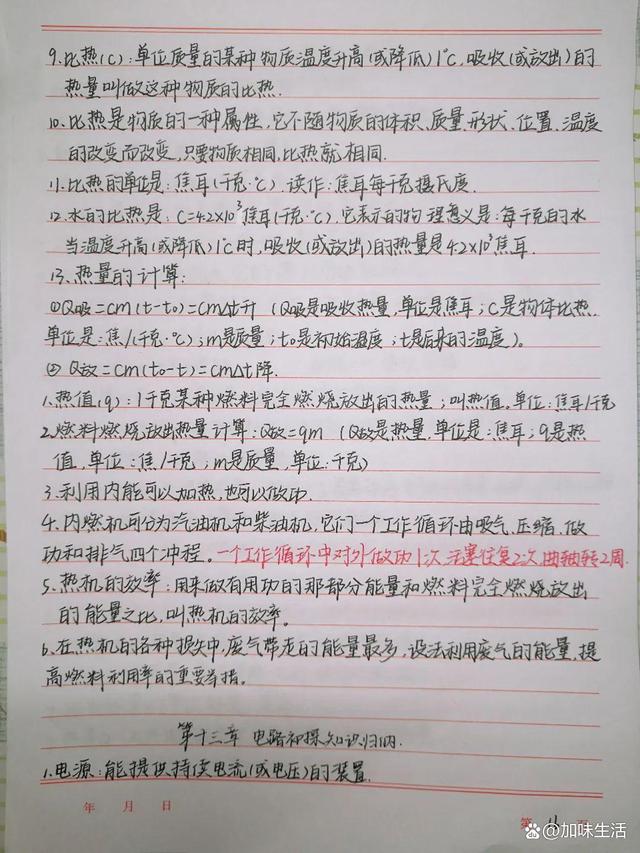 9.比热(C):单位质量的某种物质温度升高(或降低)1°C,吸收(或放出)的
热量叫做这种物质的比热.
10.比热是物质的一种属性,它不随物质的体积、质量、形状、位置、温度
的改变而改变,只要物质相同,比热就相同.
11.比热的单位是:焦耳(千克·°C),读作:焦耳每千克摄氏度.
12.水的比热是:C=4.2×10³焦耳(千克·°C),它表示的物理意义是:每千克的水
当温度升高(或降低)1°C时,吸收(或放出)的热量是4.2×10³焦耳.
13.热量的计算:
①Q吸=cm(t-t0)=cm△t升 (Q吸是吸收热量,单位是焦耳;C是物体比热,
单位是:焦/(千克·°C);m是质量;t0是初始温度;t是后来的温度)。
② Q放=cm(t0-t)=cm△t降.
1.热值(q):1千克某种燃料完全燃烧放出的热量;叫热值。单位:焦耳/千克
2.燃料燃烧放出热量计算:Q放=qm (Q放是热量,单位是:焦耳;q是热
值,单位:焦/千克;m是质量,单位:千克)
3.利用内能可以加热,也可以做功.
4.内燃机可分为汽油机和柴油机,它们一个工作循环由吸气、压缩、做
功和排气四个冲程。一个工作循环中对外做功1次,活塞往复2次,曲轴转2周.
5.热机的效率:用来做有用功的那部分能量和燃料完全燃烧放出
的能量之比,叫热机的效率。
6.在热机的各种损失中,废气带走的能量最多,设法利用废气的能量,提
高燃料利用率的重要措施。
第十三章 电路初探知识归纳.
1.电源:能提供持续电流(或电压)的装置.
年 月 日
第 11 页
@加味生活